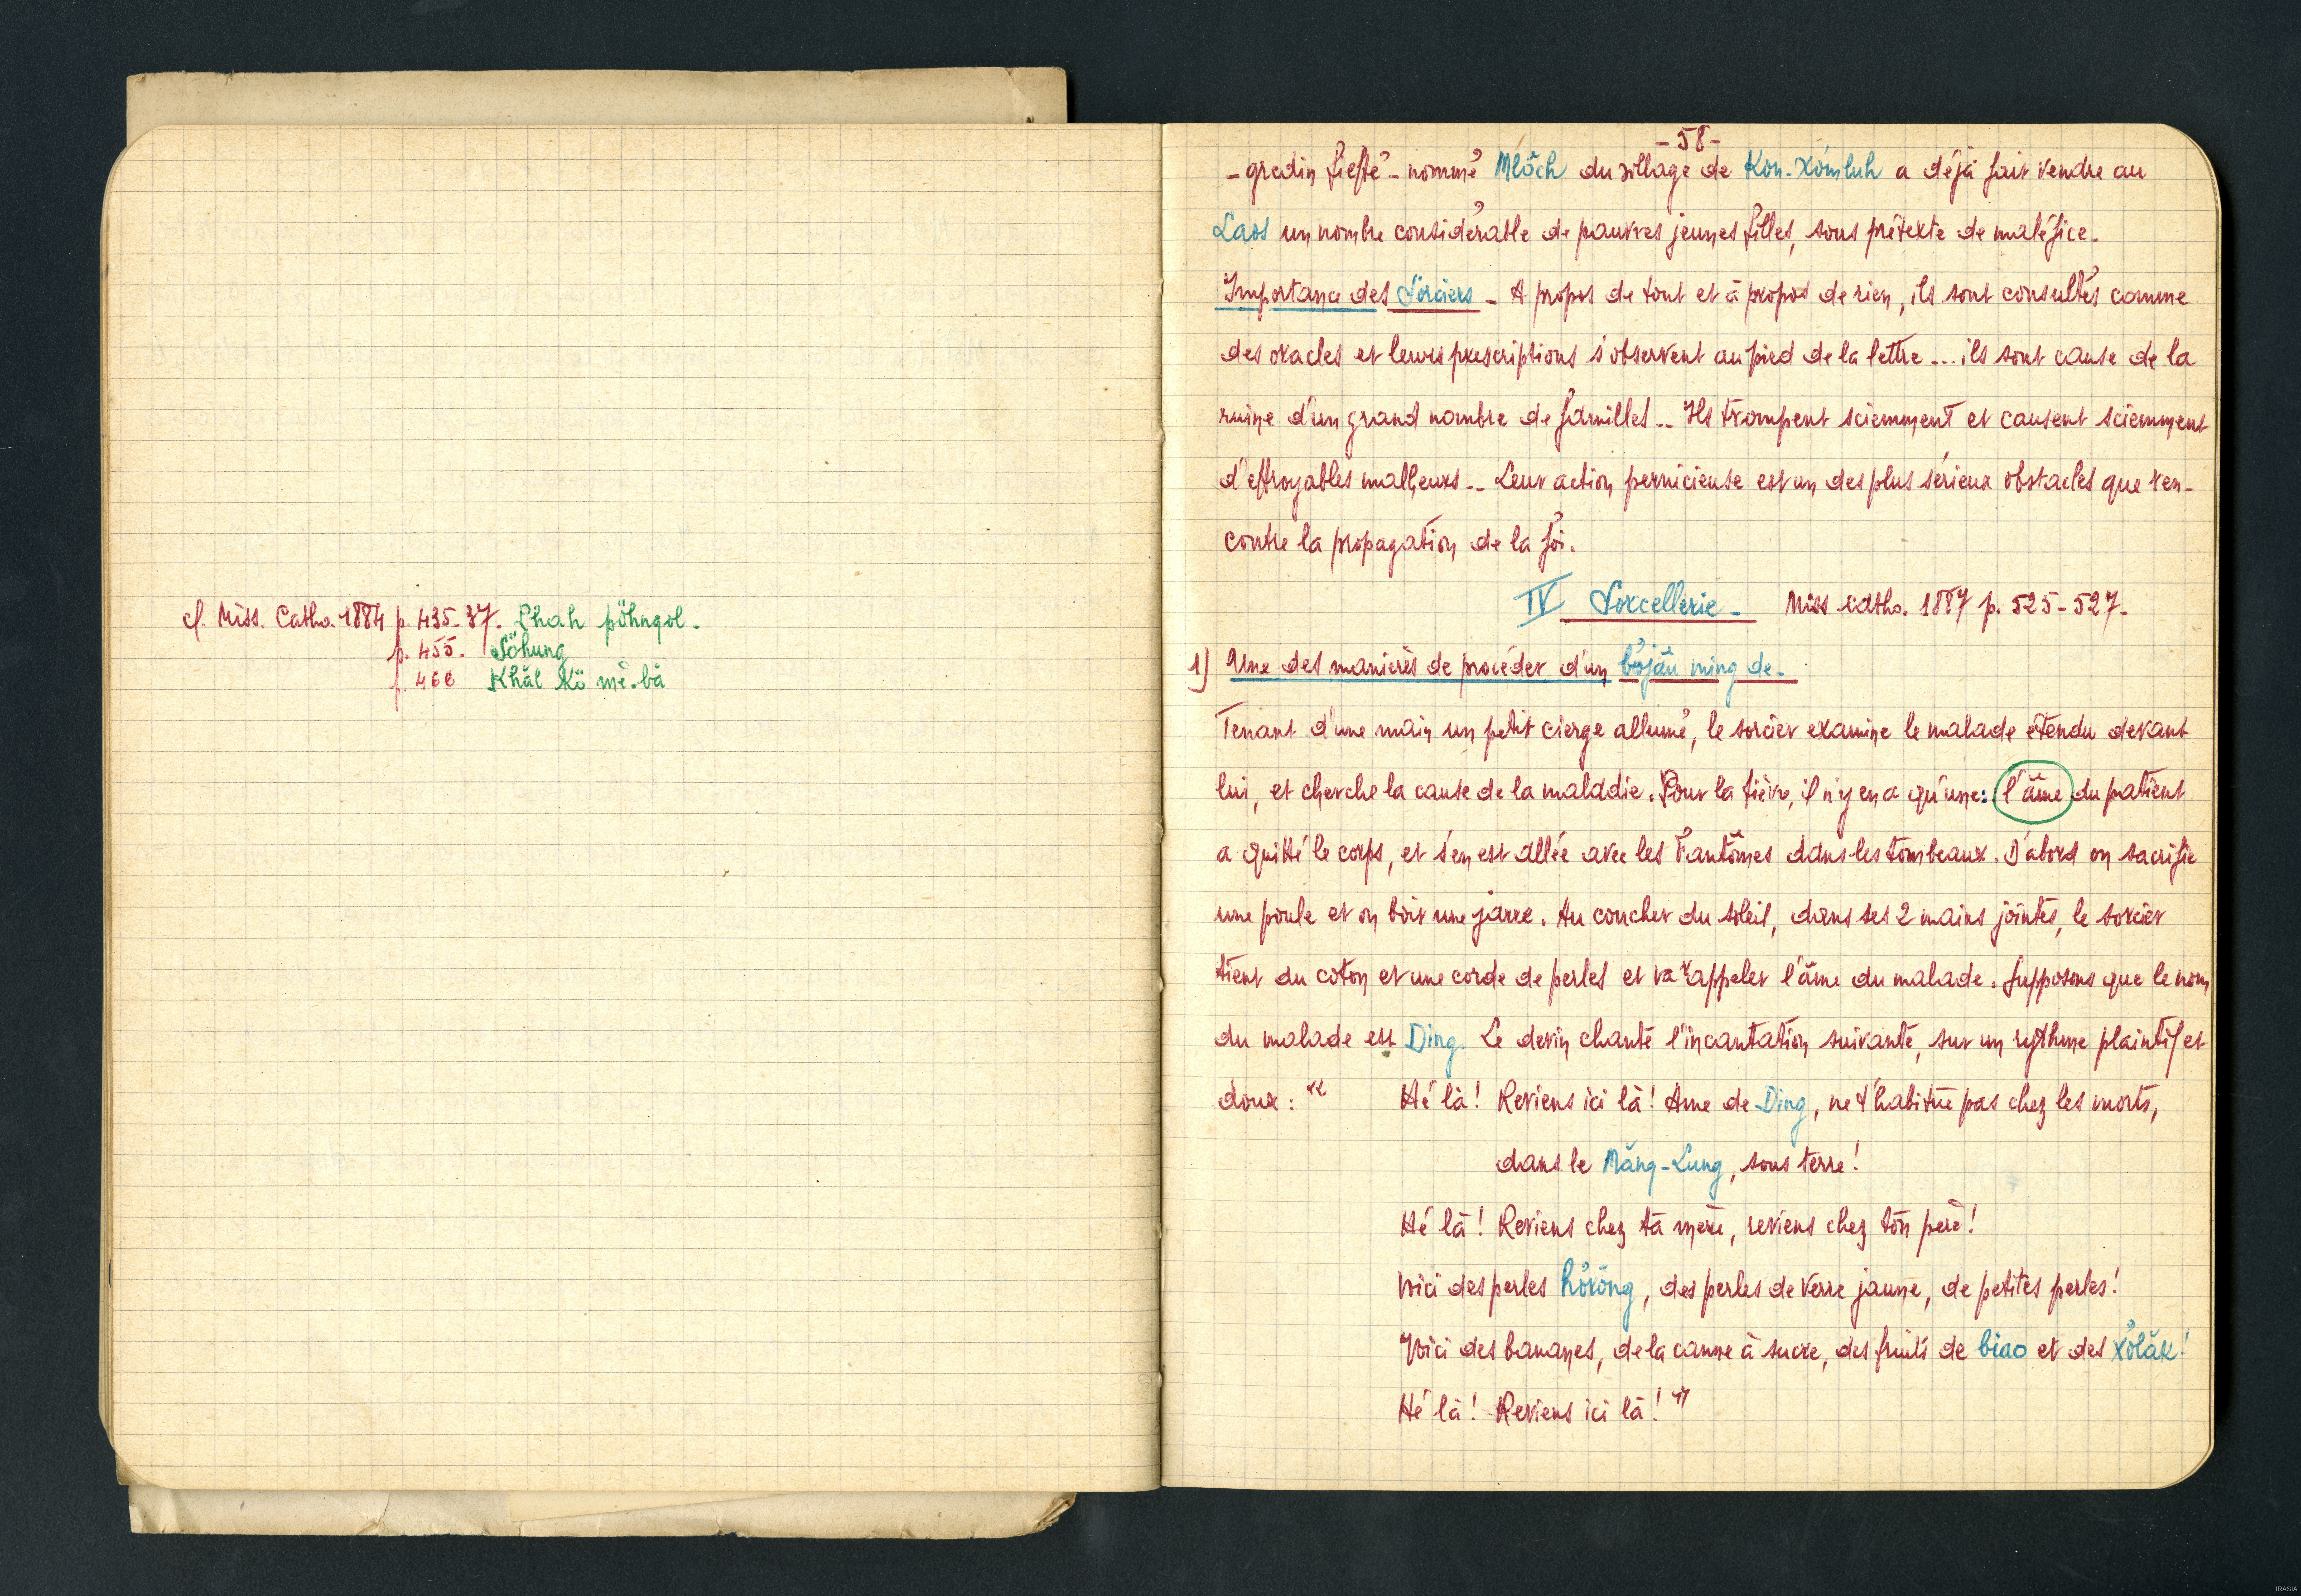 cf. Miss. Catho. 1884 p. 435-37. Chah pöhngol.
p. 455. Söhung
p. 466 Khăl Kö mè-bă
- 58 -
- gredin fieffé - nommé Mlŏch du village de Kon-Xömluh a déjà fait vendre au
Laos un nombre considérable de pauvres jeunes filles, sous prétexte de maléfice.
Importance des Sorciers - A propos de tout et à propos de rien, ils sont consultés comme
des oracles et leurs prescriptions s'observent au pied de la lettre... ils sont cause de la
ruine d'un grand nombre de familles.. Ils trompent sciemment et causent sciemment
d'effroyables malheurs.. Leur action pernicieuse est un des plus sérieux obstacles que ren-
contre la propagation de la foi.
IV Sorcellerie - Miss catho. 1887 p. 525-527.
1) Une des manières de procéder d'un böjâu ming de.
Tenant d'une main un petit cierge allumé, le sorcier examine le malade étendu devant
lui, et cherche la cause de la maladie. Pour la fièvre, il n'y en a qu'une: l'âme du patient
a quitté le corps, et s'en est allée avec les Fantômes dans les tombeaux. D'abord on sacrifie
une poule et on boit une jarre. Au coucher du soleil, dans ses 2 mains jointes, le sorcier
tient du coton et une corde de perles et va rappeler l'âme du malade. Supposons que le nom
du malade est Ding. Le devin chante l'incantation suivante, sur un rythme plaintif et
doux : " Hé là ! Reviens ici là ! Ame de Ding, ne t'habitue pas chez les morts,
dans le Măng-Lung, sous terre !
Hé là ! Reviens chez ta mère, reviens chez ton père !
Voici des perles höröng, des perles de verre jaune, de petites perles !
Voici des bananes, de la canne à sucre, des fruits de biao et des xölăk !
Hé là ! Reviens ici là ! "
IRASIA